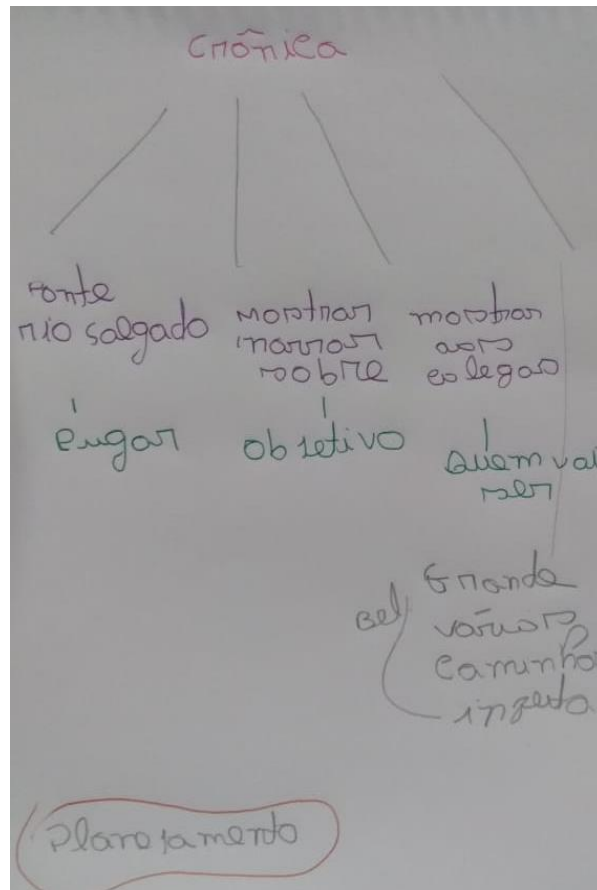 Crônica
Fonte
rio salgado
mostrar
narrar
sobre
mostrar
aos
colegas
lugar
objetivo
Quem vai
ler
Bel
Grande
vários
caminho